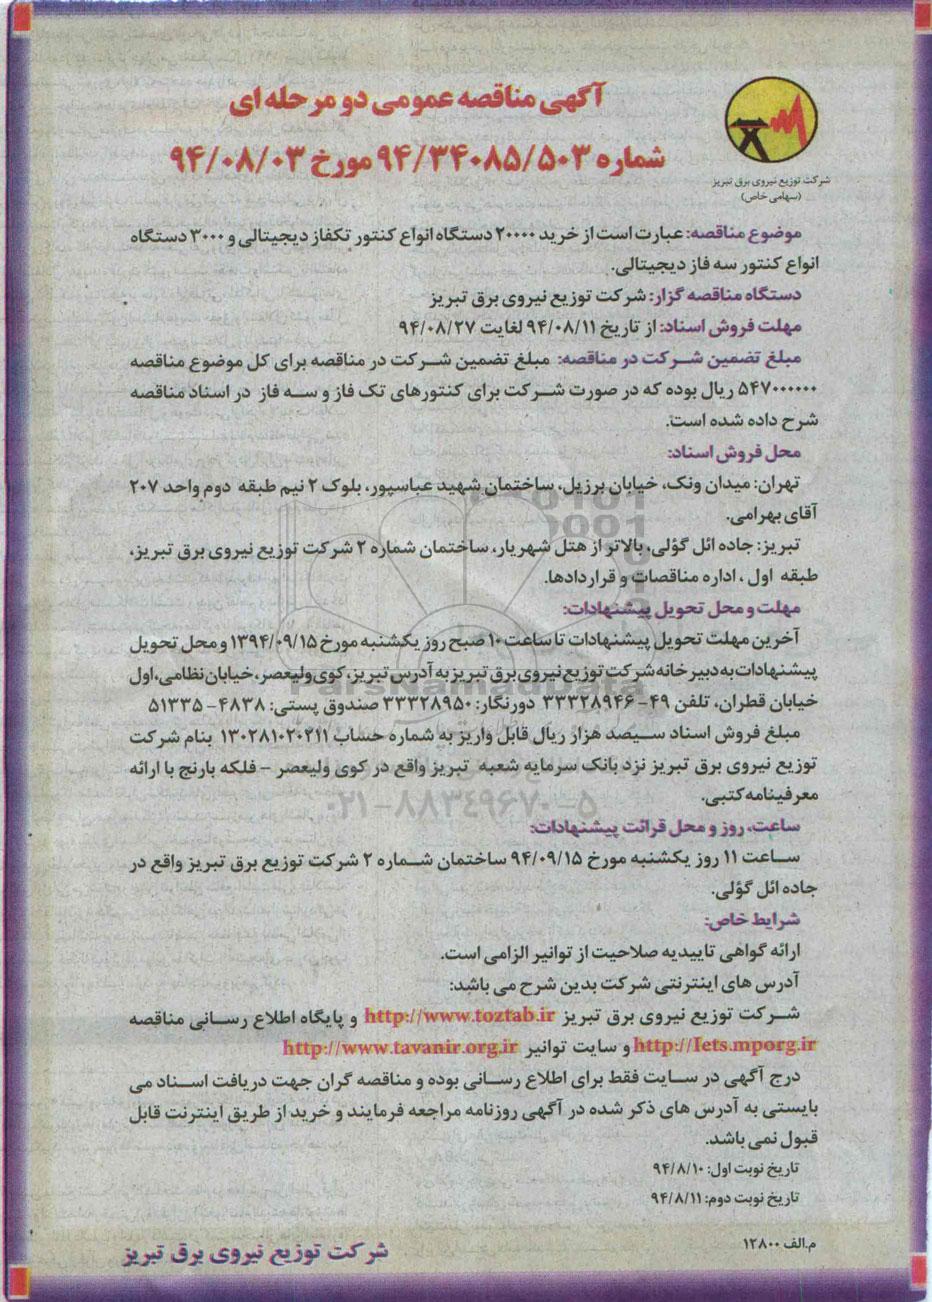 آگهی مناقصه عمومی دو مرحله ای
شماره ۹۴/۳۴۰۸۵/۵۰۳ مورخ ۹۴/۰۸/۰۳
شرکت توزیع نیروی برق تبریز
(سهامی خاص)
موضوع مناقصه: عبارت است از خرید ۲۰۰۰۰ دستگاه انواع کنتور تکفاز دیجیتالی و ۳۰۰۰ دستگاه
انواع کنتور سه فاز دیجیتالی.
دستگاه مناقصه گزار: شرکت توزیع نیروی برق تبریز
مهلت فروش اسناد: از تاریخ ۹۴/۰۸/۱۱ لغایت ۹۴/۰۸/۲۷
مبلغ تضمین شرکت در مناقصه: مبلغ تضمین شرکت در مناقصه برای کل موضوع مناقصه
۵۴۷۰۰۰۰۰۰ ریال بوده که در صورت شرکت برای کنتورهای تک فاز و سه فاز در اسناد مناقصه
شرح داده شده است.
محل فروش اسناد:
تهران: میدان ونک، خیابان برزیل، ساختمان شهید عباسپور، بلوک ۲ نیم طبقه دوم واحد ۲۰۷
آقای بهرامی.
تبریز: جاده ائل گؤلی، بالاتر از هتل شهریار، ساختمان شماره ۲ شرکت توزیع نیروی برق تبریز،
طبقه اول ، اداره مناقصات و قراردادها.
مهلت و محل تحویل پیشنهادات:
آخرین مهلت تحویل پیشنهادات تا ساعت ۱۰ صبح روز یکشنبه مورخ ۱۳۹۴/۰۹/۱۵ و محل تحویل
پیشنهادات به دبیرخانه شرکت توزیع نیروی برق تبریز به آدرس تبریز، کوی ولیعصر، خیابان نظامی، اول
خیابان قطران، تلفن ۴۹-۳۳۳۲۸۹۴۶ دورنگار: ۳۳۳۲۸۹۵۰ صندوق پستی: ۴۸۳۸- ۵۱۳۳۵
مبلغ فروش اسناد سیصد هزار ریال قابل واریز به شماره حساب ۱۳۰۲۸۱۰۲۰۲۱۱ بنام شرکت
توزیع نیروی برق تبریز نزد بانک سرمایه شعبه تبریز واقع در کوی ولیعصر - فلکه بارنج با ارائه
معرفینامه کتبی.
۰۲۱-۸۸۳۴۹۶۷۰-۵
ساعت، روز و محل قرائت پیشنهادات:
ساعت ۱۱ روز یکشنبه مورخ ۹۴/۰۹/۱۵ ساختمان شماره ۲ شرکت توزیع برق تبریز واقع در
جاده ائل گؤلی.
شرایط خاص:
ارائه گواهی تاییدیه صلاحیت از توانیر الزامی است.
آدرس های اینترنتی شرکت بدین شرح می باشد:
شرکت توزیع نیروی برق تبریز http://www.toztab.ir و پایگاه اطلاع رسانی مناقصه
http://Iets.mporg.ir و سایت توانیر http://www.tavanir.org.ir
درج آگهی در سایت فقط برای اطلاع رسانی بوده و مناقصه گران جهت دریافت اسناد می
بایستی به آدرس های ذکر شده در آگهی روزنامه مراجعه فرمایند و خرید از طریق اینترنت قابل
قبول نمی باشد.
تاریخ نوبت اول: ۹۴/۸/۱۰
تاریخ نوبت دوم: ۹۴/۸/۱۱
م.الف ۱۲۸۰۰
شرکت توزیع نیروی برق تبریز